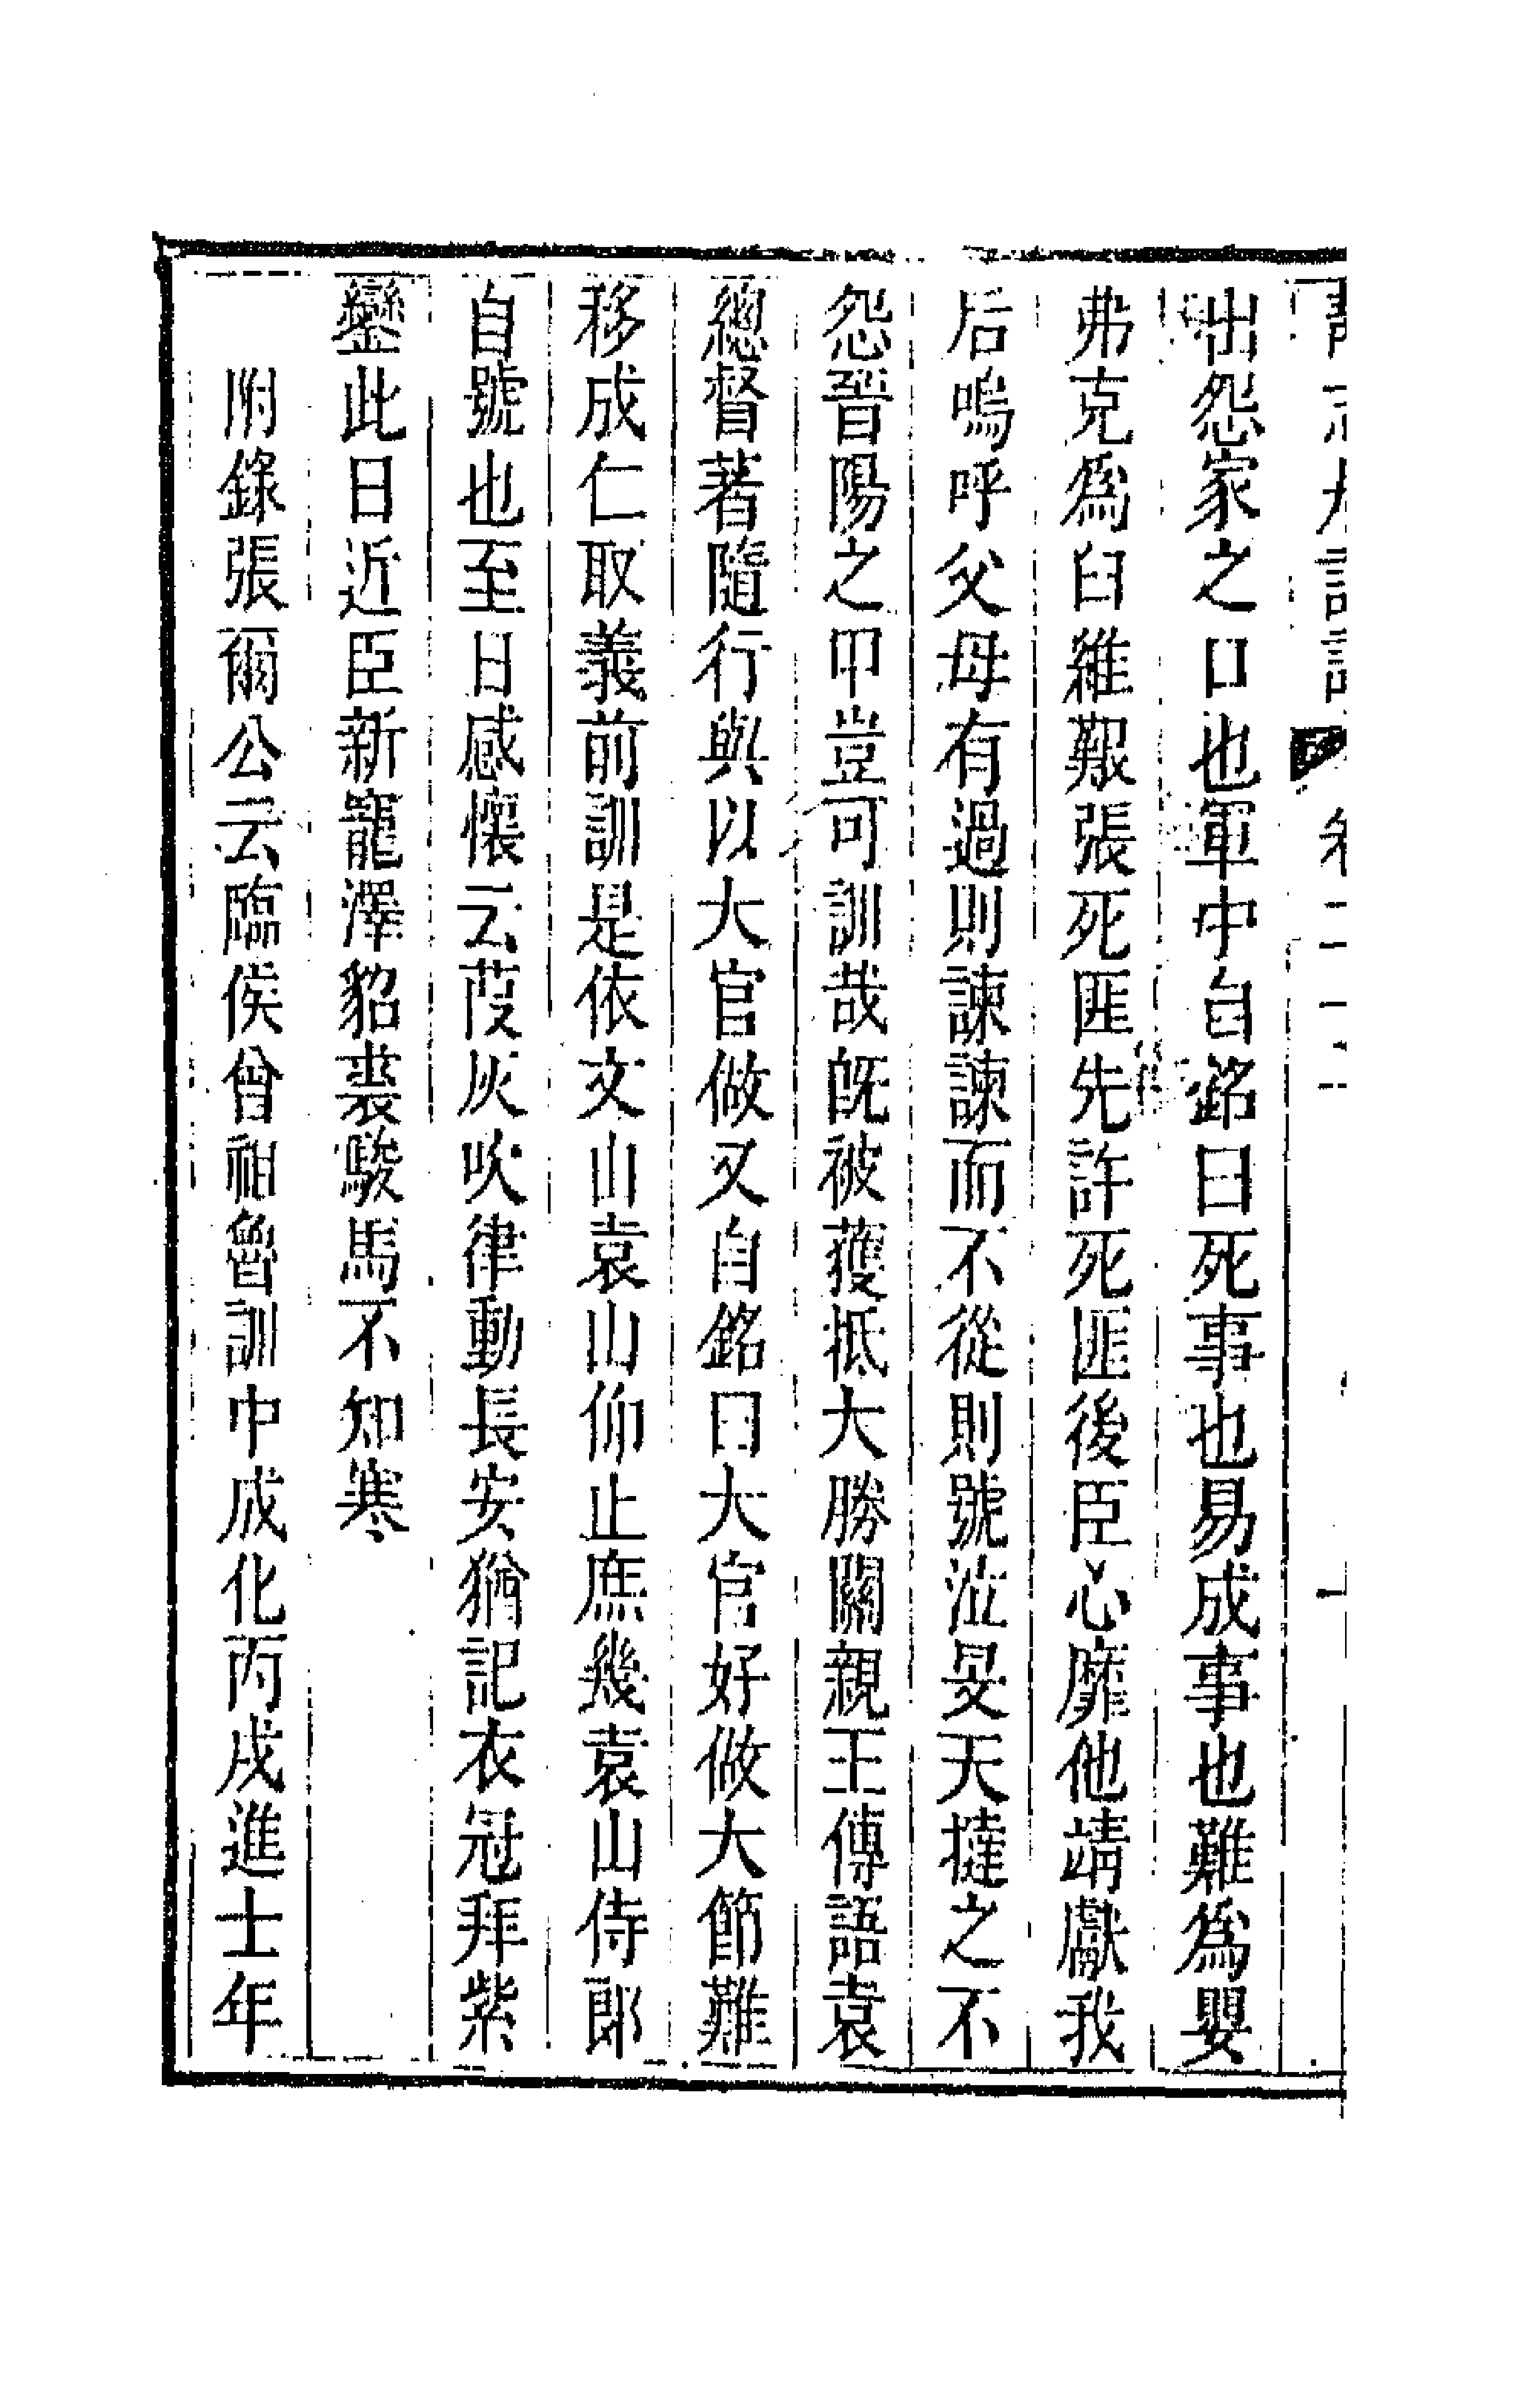 出怨家之口也軍中自銘曰死事也易成事也難爲嬰
弗克爲臼維艱張死匪先許死匪後臣心靡他靖獻我
后嗚呼父母有過則諫諫而不從則號泣旻天撻之不
怨晉陽之甲豈可訓哉旣被獲抵大勝關親王傳語袁
總督著隨行與以大官做又自銘曰大官好做大節難
移成仁取義前訓是依文山袁山仰止庶幾袁山侍郎
自號也至日感懷云葭灰吹律動長安猶記衣冠拜紫
鑾此日近臣新寵澤貂裘駿馬不知寒
附錄張爾公云臨侯曾祖魯訓中成化丙戌進士年